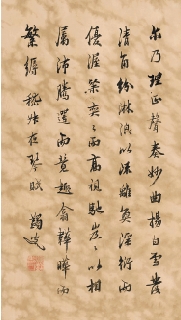 尔乃理正聲奏妙曲揚白雪發
清角紛淋浪以流離奐淫衍而
優渥粲奕々而高逝馳岌々以相
屬沛騰遌而競趣翕韡曄而
繁縟 嵇叔夜琴賦